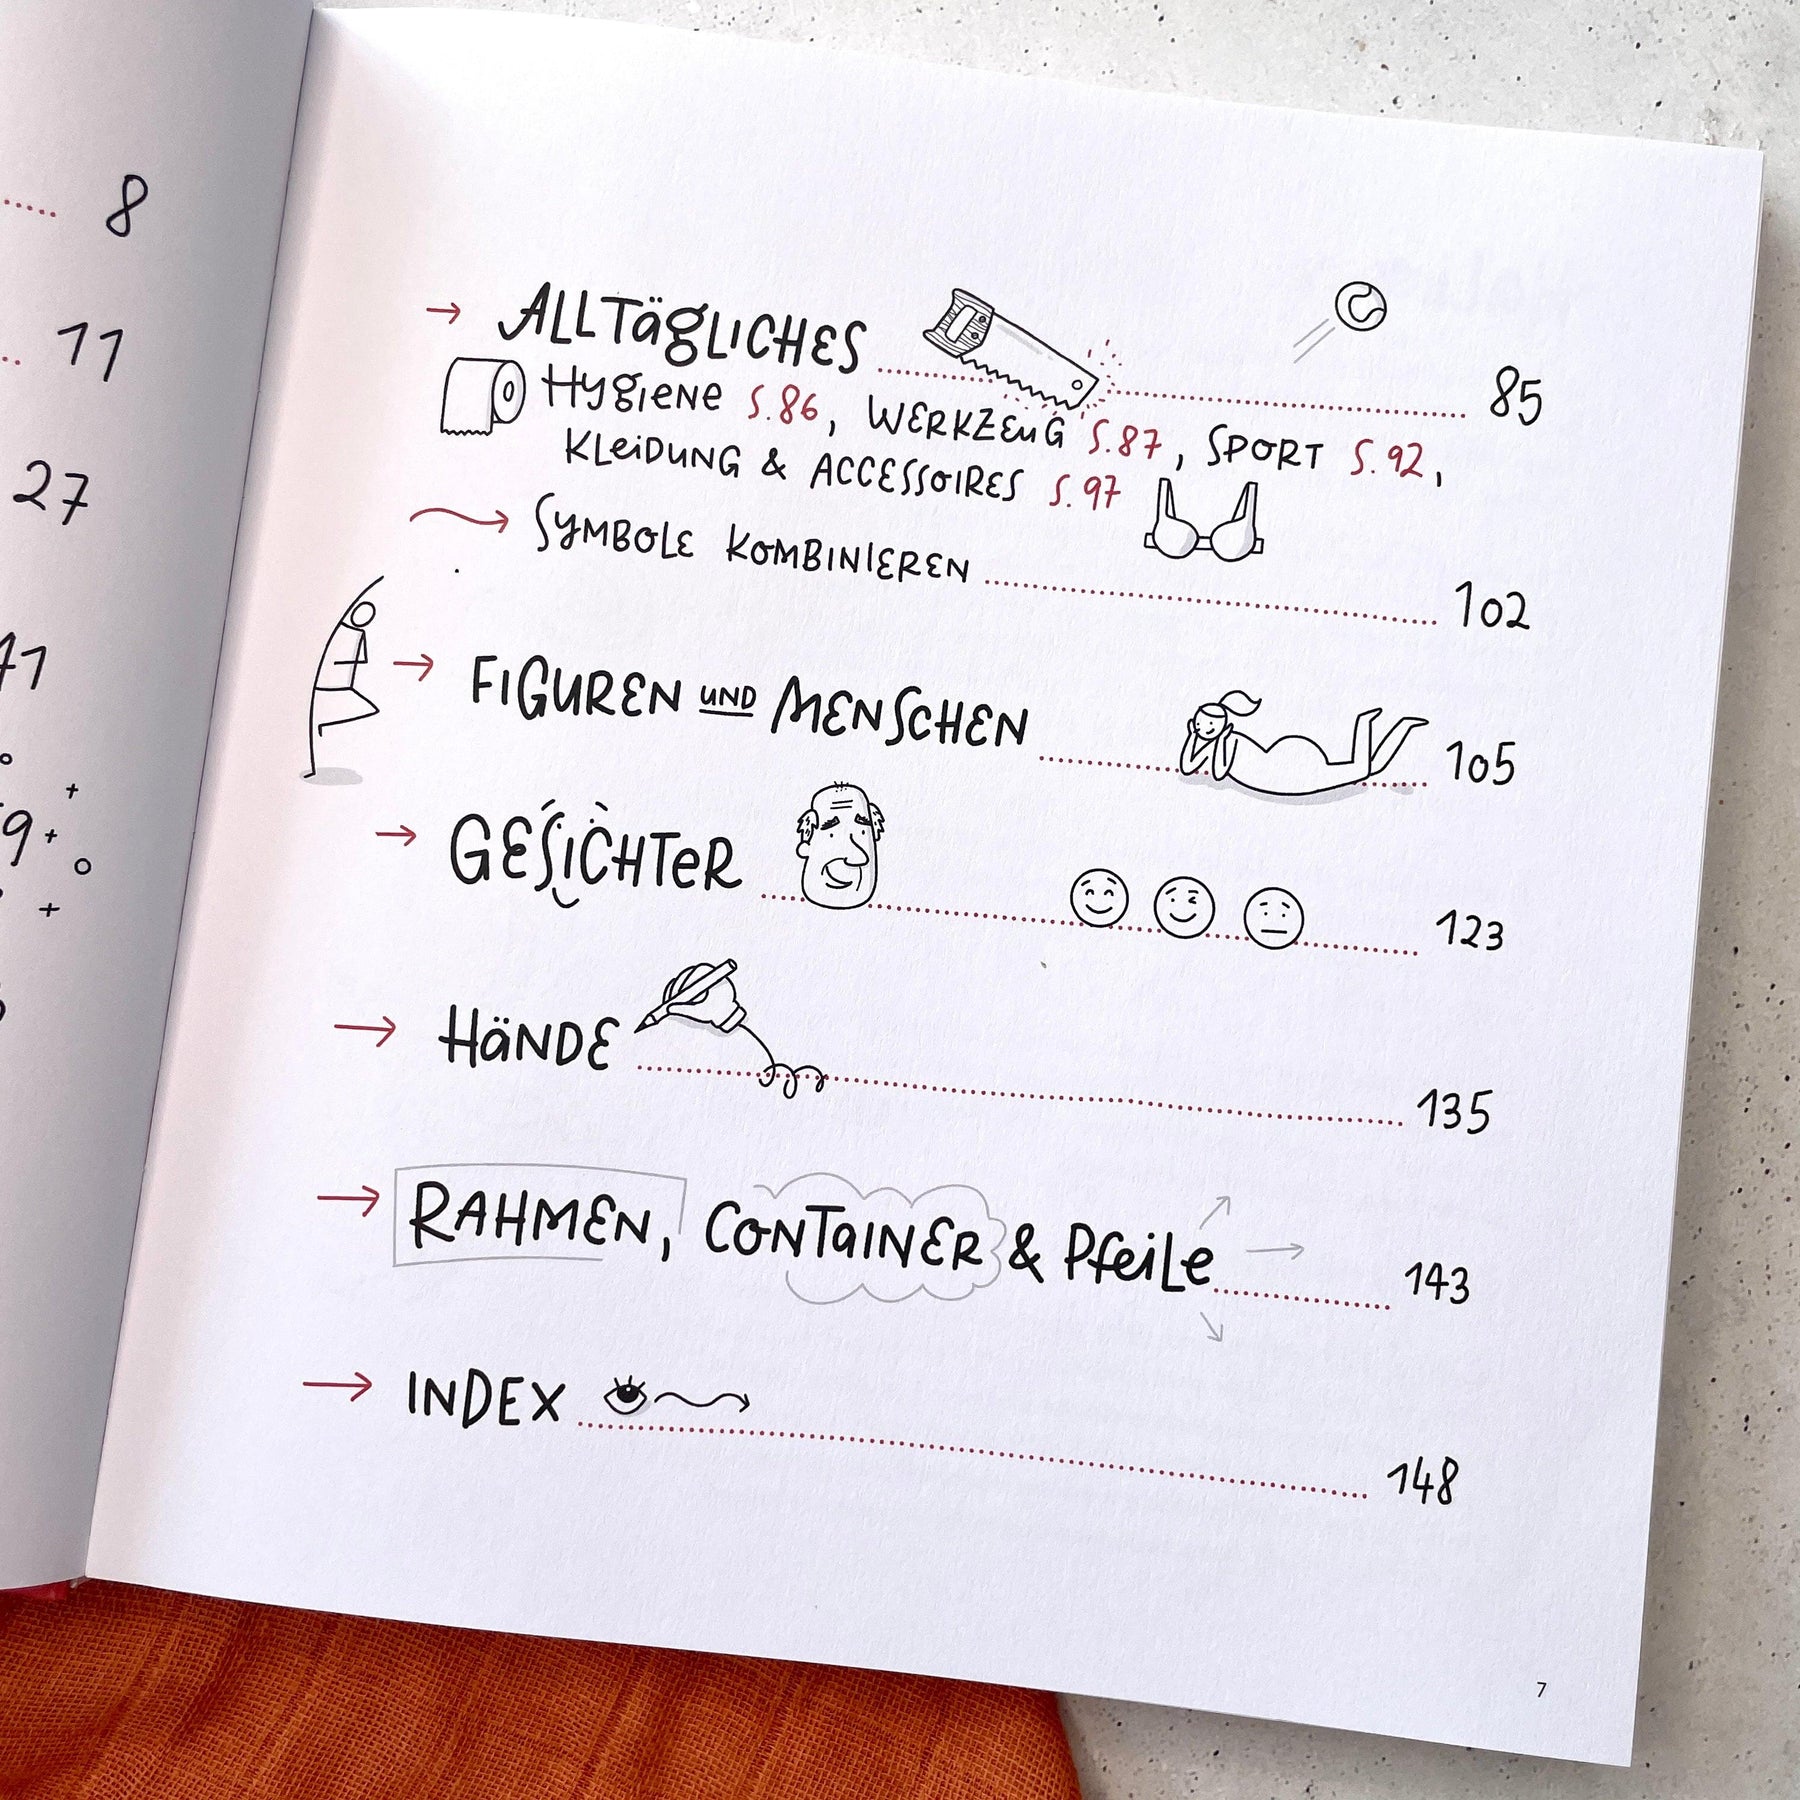 8
11
27
ALLTäGLICHES 85
HYGIENE S.86, WERKZEUG S.87, SPORT S.92,
KLEIDUNG & ACCESSOIRES S.97
SYMBOLE KOMBINIEREN 102
FIGUREN UND MENSCHEN 105
GESICHTER 123
HäNDE 135
RAHMEN, CONTAINER & PFEILE 143
INDEX 148
7